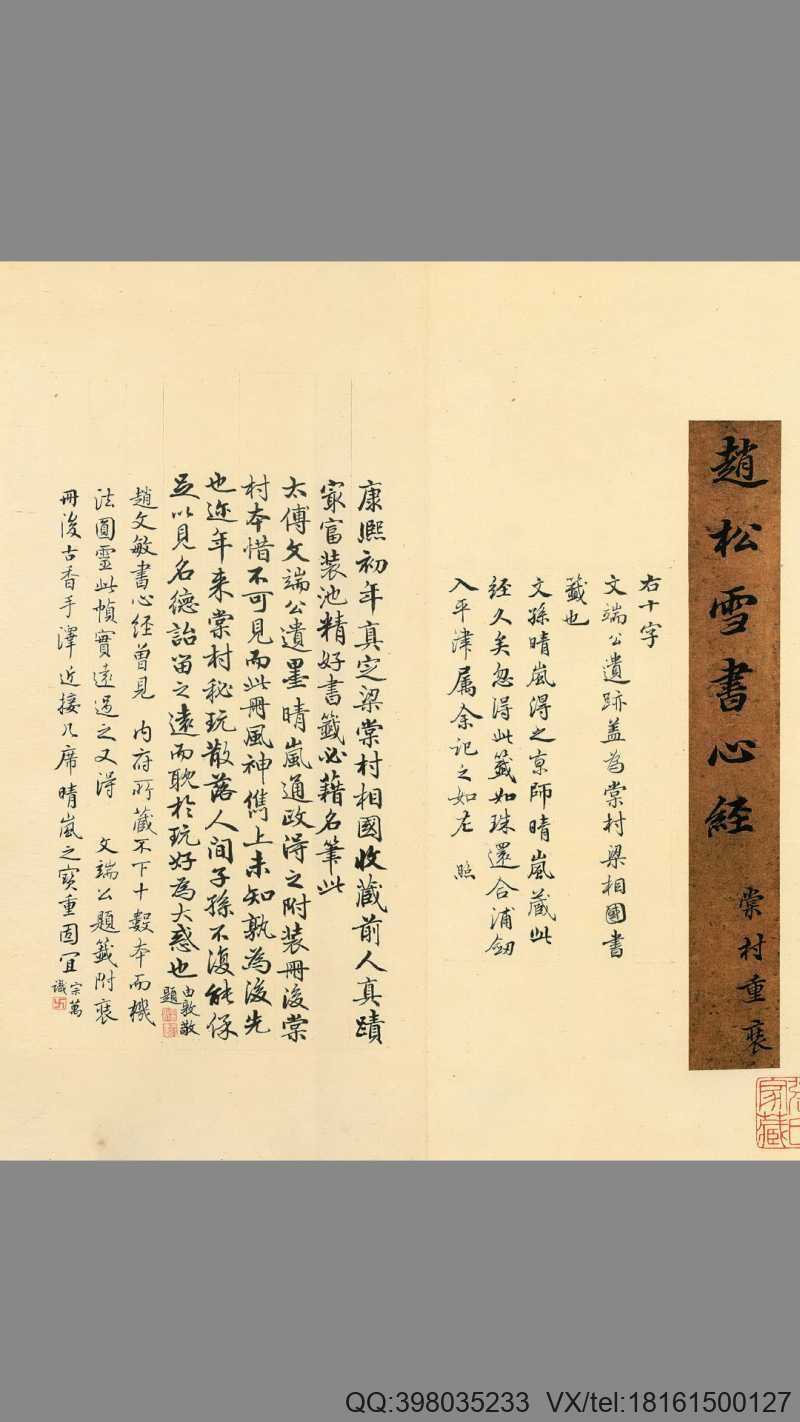 趙松雪書心経
棠村重裝
右十字
文端公遺跡蓋為棠村梁相國書
籤也
文孫晴嵐得之京師晴嵐藏此
経久矣忽得此籤如珠還合浦劒
入平津屬余記之如左 照
康熙初年真定梁棠村相國收藏前人真蹟
冣富装池精好書籤必藉名筆此
太傅文端公遺墨晴嵐通政得之附装冊後棠
村本惜不可見而此冊風神儁上未知孰為後先
也迩年来棠村秘玩散落人間子孫不復能保
足以見名德詒留之遠而耽於玩好為大惑也 由敦敬題
趙文敏書心経曾見 内府所藏不下十數本而機
法圓靈此幀實遠過之又得 文端公題籤附裝
冊後古香手澤近接几席晴嵐之寶重固宜 宗萬識
家藏
QQ:398035233 VX/tel:18161500127